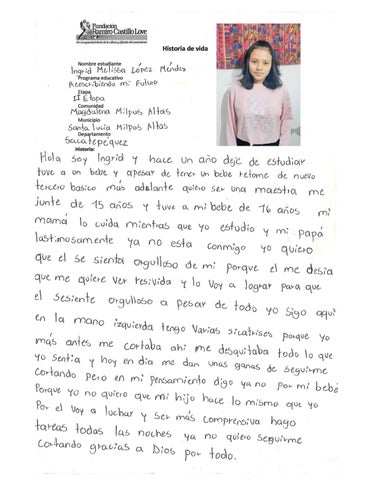 Fundación
Ramiro Castillo Love
Historia de vida
Nombre estudiante
Ingrid Melissa López Méndez
Programa educativo
Reescribiendo mi Futuro
Etapa
II Etapa
Comunidad
Magdalena Milpas Altas
Municipio
Santa lucia Milpas Altas
Departamento
Sacatepequez
Historia:
Hola Soy Ingrid y hace un año deje de estudiar
tuve a un bebe y apesar de tener un bebe retome de nuevo
tercero basico más adelante quiero ser una maestra me
junte de 15 años y tuve a mi bebe de 16 años mi
mamá lo cuida mientras que yo estudio y mi papá
lastimosamente ya no esta conmigo yo quiero
que el se sienta orgulloso de mi porque el me desia
que me quiere ver resivida y lo voy a lograr para que
el sesiente orgulloso a pesar de todo yo sigo aqui
en la mano izquierda tengo varias sicatrises porque yo
más antes me cortaba ahi me desquitaba todo lo que
yo sentia y hoy en dia me dan unas ganas de seguirme
cortando pero en mi pensamiento digo ya no por mi bebé
Porque yo no quiero que mi hijo hace lo mismo que yo
Por el voy a luchar y ser más comprensiva hago
tareas todas las noches ya no quiero seguirme
cortando gracias a Dios por todo.